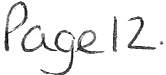 Page 12.